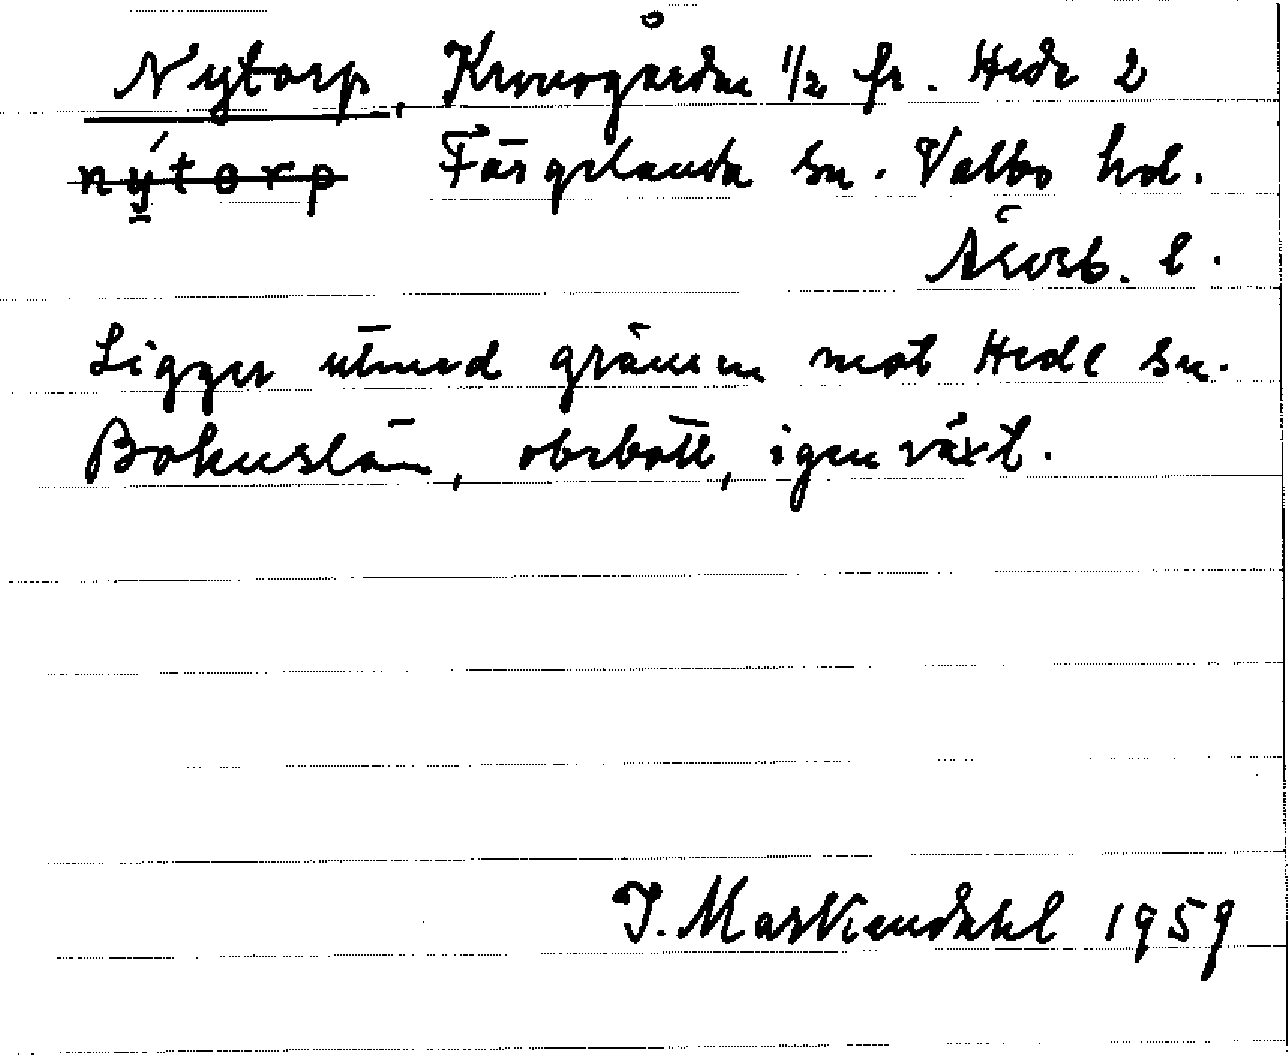 Nytorp, Kronogården 1/2 fr. Hede 2
nýtorp Färgelanda sn. Valbo hd.
Älvsb. l.
Ligger utmed gränsen mot Hede sn.
Bohuslän, obebott, igenväxt.
I. Maskendahl 1959